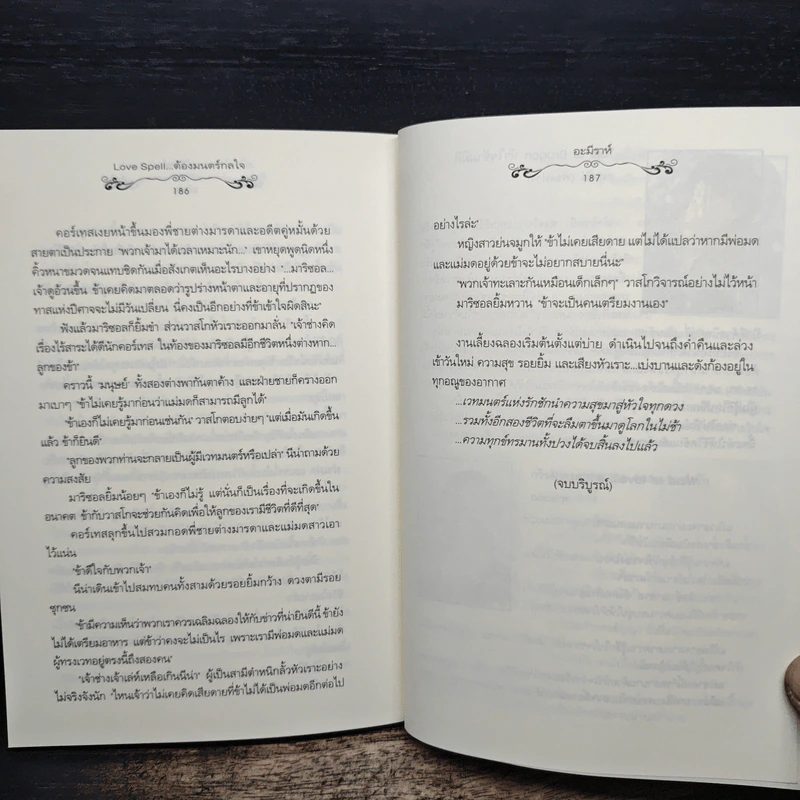 Love Spell...ต้องมนตร์กลใจ
186
คอร์เทสเงยหน้าขึ้นมองพี่ชายต่างมารดาและอดีตคู่หมั้นด้วย
สายตาเป็นประกาย "พวกเจ้ามาได้เวลาเหมาะนัก..." เขาหยุดพูดนิดหนึ่ง
คิ้วหนาขมวดจนแทบชิดกันเมื่อสังเกตเห็นอะไรบางอย่าง "...มาริซอล...
เจ้าดูอ้วนขึ้น ข้าเคยคิดมาตลอดว่ารูปร่างหน้าตาและอายุที่ปรากฏของ
ทาสแห่งปีศาจจะไม่มีวันเปลี่ยน นี่คงเป็นอีกอย่างที่ข้าเข้าใจผิดสินะ"
ฟังแล้วมาริซอลก็ยิ้มขำ ส่วนวาสโกหัวเราะออกมาลั่น "เจ้าช่างคิด
เรื่องไร้สาระได้ดีนักคอร์เทส ในท้องของมาริซอลมีอีกชีวิตหนึ่งต่างหาก...
ลูกของข้า"
คราวนี้ 'มนุษย์' ทั้งสองต่างพากันตาค้าง และฝ่ายชายก็ครางออก
มาเบาๆ "ข้าไม่เคยรู้มาก่อนว่าแม่มดก็สามารถมีลูกได้"
"ข้าเองก็ไม่เคยรู้มาก่อนเช่นกัน" วาสโกตอบง่ายๆ "แต่เมื่อมันเกิดขึ้น
แล้ว ข้าก็ยินดี"
"ลูกของพวกท่านจะกลายเป็นผู้มีเวทมนตร์หรือเปล่า" นีน่าถามด้วย
ความสงสัย
มาริซอลยิ้มน้อยๆ "ข้าเองก็ไม่รู้ แต่นั่นก็เป็นเรื่องที่จะเกิดขึ้นใน
อนาคต ข้ากับวาสโกจะช่วยกันคิดเพื่อให้ลูกของเรามีชีวิตที่ดีที่สุด"
คอร์เทสลุกขึ้นไปสวมกอดพี่ชายต่างมารดาและแม่มดสาวเอา
ไว้แน่น
"ข้าดีใจกับพวกเจ้า"
นีน่าเดินเข้าไปสมทบคนทั้งสามด้วยรอยยิ้มกว้าง ดวงตามีรอย
ซุกซน
"ข้ามีความเห็นว่าพวกเราควรเฉลิมฉลองให้กับข่าวที่น่ายินดีนี้ ข้ายัง
ไม่ได้เตรียมอาหาร แต่ข้าว่าคงจะไม่เป็นไร เพราะเรามีพ่อมดและแม่มด
ผู้ทรงเวทอยู่ตรงนี้ถึงสองคน"
"เจ้าช่างเจ้าเล่ห์เหลือเกินนีน่า" ผู้เป็นสามีตำหนิกลั้วหัวเราะอย่าง
ไม่จริงจังนัก "ไหนเจ้าว่าไม่เคยคิดเสียดายที่ข้าไม่ได้เป็นพ่อมดอีกต่อไป
อะมีราห์
187
อย่างไรล่ะ"
หญิงสาวย่นจมูกให้ "ข้าไม่เคยเสียดาย แต่ไม่ได้แปลว่าหากมีพ่อมด
และแม่มดอยู่ด้วยข้าจะไม่อยากสบายนี่นะ"
"พวกเจ้าทะเลาะกันเหมือนเด็กเล็กๆ" วาสโกวิจารณ์อย่างไม่ไว้หน้า
มาริซอลยิ้มหวาน "ข้าจะเป็นคนเตรียมงานเอง"
งานเลี้ยงฉลองเริ่มต้นตั้งแต่บ่าย ดำเนินไปจนถึงค่ำคืนและล่วง
เข้าวันใหม่ ความสุข รอยยิ้ม และเสียงหัวเราะ...เบ่งบานและดังก้องอยู่ใน
ทุกอณูของอากาศ
...เวทมนตร์แห่งรักชักนำความสุขมาสู่หัวใจทุกดวง
...รวมทั้งอีกสองชีวิตที่จะลืมตาขึ้นมาดูโลกในไม่ช้า
...ความทุกข์ทรมานทั้งปวงได้จบสิ้นลงไปแล้ว
(จบบริบูรณ์)